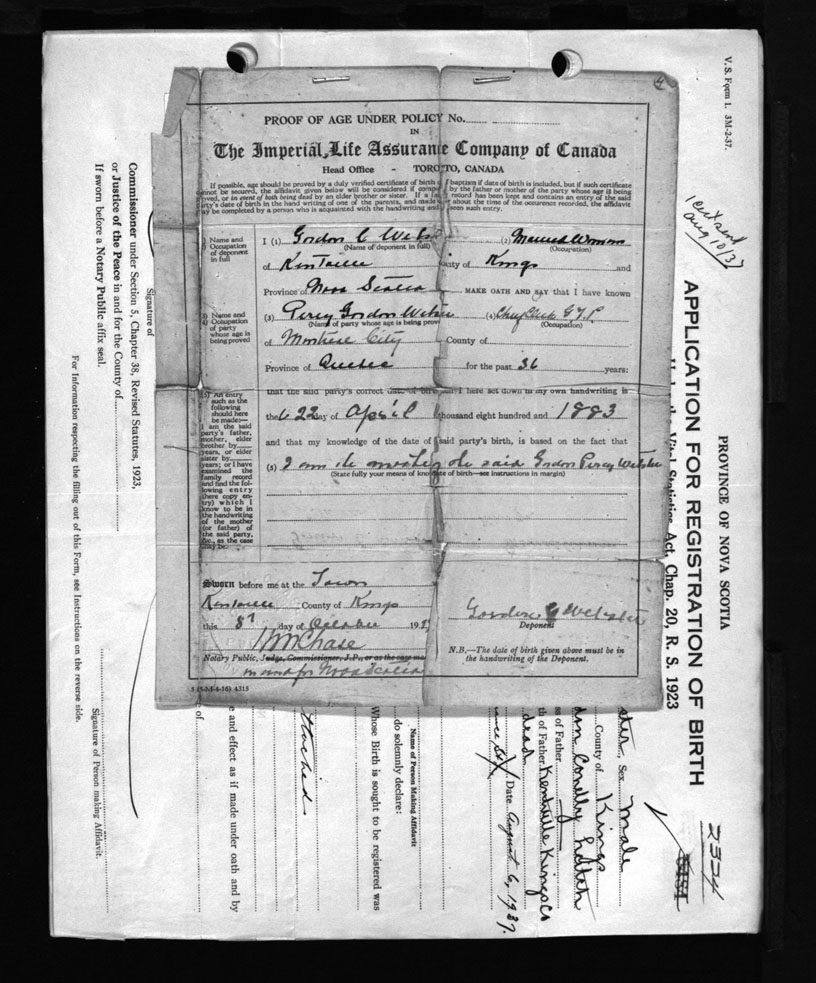 PROOF OF AGE UNDER POLICY No.
IN
The Imperial Life Assurance Company of Canada
Head Office - TORONTO, CANADA
If possible, age should be proved by a duly verified certificate of birth of baptism if date of birth is included, but if such certificate
cannot be secured, the affidavit given below will be considered if by the father or mother of the party whose age is being
proved, or in event of both being dead by an elder brother or sister. If a record has been kept and contains an entry of the said
party's date of birth in the hand writing of one of the parents, and made about the time of the occurence recorded, the affidavit
may be completed by a person who is acquainted with the handwriting and seen such entry.
Name and Occupation of deponent in full
I (1) Gordon C Webst (2) Married Woman
(Name of deponent in full) (Occupation)
of Kentville County of Kings and
Province of Nova Scotia MAKE OATH AND SAY that I have known
Name and Occupation of party whose age is being proved
(3) Percy Gordon Webster (4) Chief Clerk G.T.P.
(Name of party whose age is being prov (Occupation)
of Montreal City County of
Province of Quebec for the past 36 years:
(5) An entry such as the following should here be made:—
I am the said party's father, mother, elder brother by years, or elder sister by years; or I have examined the family record and find the following entry (here copy entry) which I know to be in the handwriting of the mother (or father) of the said party, &c., as the case may be.
that the said party's correct date of birth I here set down in my own handwriting is
the 22 day of April thousand eight hundred and 1883
and that my knowledge of the date of said party's birth, is based on the fact that
(5) I am the mother of the said Gordon Percy Webster
(State fully your means of knowledge of birth—see instructions in margin)
Sworn before me at the Town
Kentville County of Kings
this 8th day of October 191
Chase
Notary Public, Judge, Commissioner, J.P., or as the case ma
in and for Nova Scotia
Gordon C Webster
Deponent
N.B.—The date of birth given above must be
in the handwriting of the Deponent.
4315
V. S. Form 1. 3M-2-37.
Aug 10/37
PROVINCE OF NOVA SCOTIA
APPLICATION FOR REGISTRATION OF BIRTH
Under the Vital Statistics Act, Chap. 20, R. S. 1923
2324
ster, Sex. Male
County of Kings
of Father
th of Father. Kentville Kings Co
dead
Date August 6, 1937.
Name of Person Making Affidavit
do solemnly declare:
Whose Birth is sought to be registered was
ttached
e and effect as if made under oath and by
of
Signature of
Commissioner under Section 5, Chapter 38, Revised Statutes, 1923,
or Justice of the Peace in and for the County of
If sworn before a Notary Public affix seal.
Signature of Person making Affidavit.
For Information respecting the filling out of this Form, see Instructions on the reverse side.